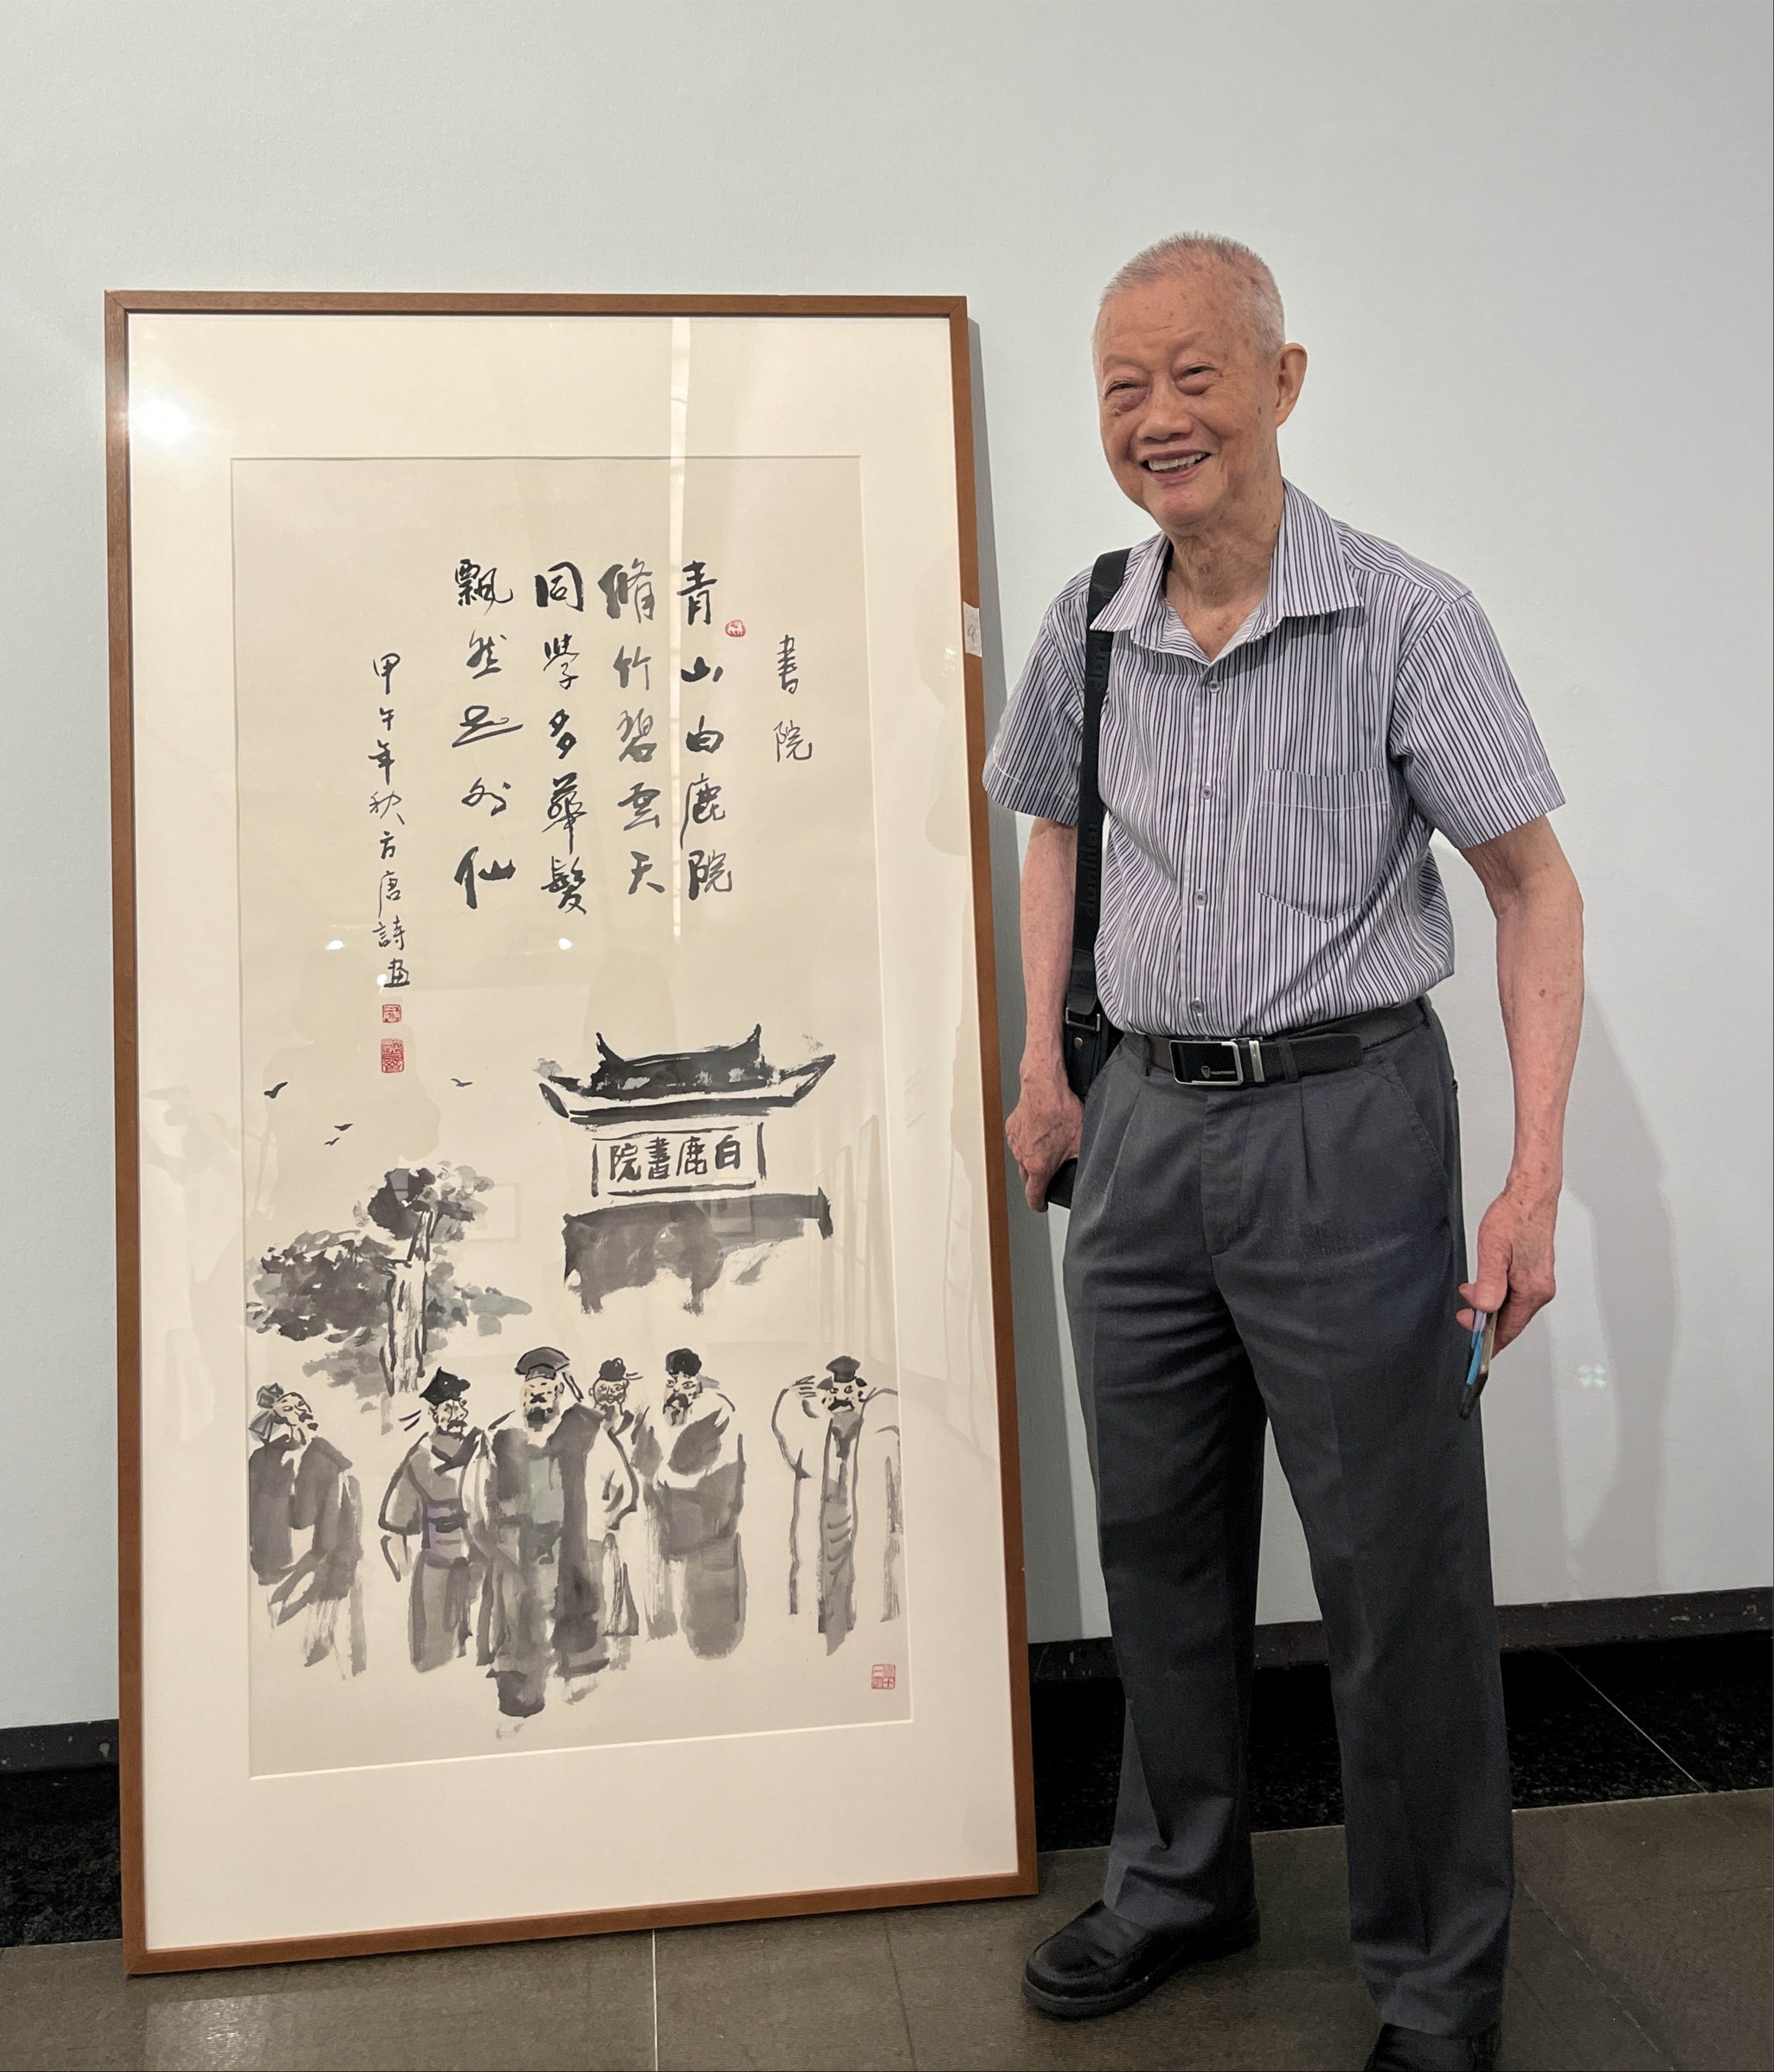 書院
青山白鹿院
脩竹碧雲天
同學多華髮
飄然世外仙
甲午年秋方唐詩畫
白鹿書院